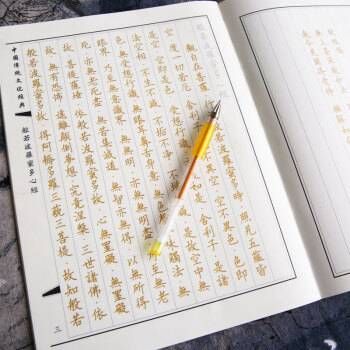 觀自在菩薩 行深般若波羅蜜多時 照見五蘊皆
空 度一切苦厄 舍利子 色不異空 空不異色 色即
是空 空即是色 受想行識 亦復如是 舍利子 是諸
法空相 不生不滅 不垢不淨 不增不減 是故空中 無
色 無受想行識 無眼耳鼻舌 色聲香味觸法 無
眼界 乃至無意識界 無無明 亦無 盡 乃至無老
死 亦無老死盡 無苦集滅道 無智亦無得 以無所得
故 菩提薩埵 依般若波羅蜜多故 心無罣礙 無罣礙
故 無有恐怖 遠離顛倒夢想 究竟涅槃 三世諸佛 依
般若波羅蜜多故 得阿耨多羅三藐三菩提 故知般若
中國傳統文化經典
般若波羅蜜多心經
三